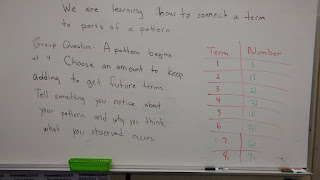 We are learning how to connect a term
to parts of a pattern
Group Question: A pattern begins
at 4 Choose an amount to keep
adding to get future terms.
Tell something you notice about
your pattern and why you think
what you observed occurs.
Term Number
1 1
2 11
3 21
4 31
5
6
7
8